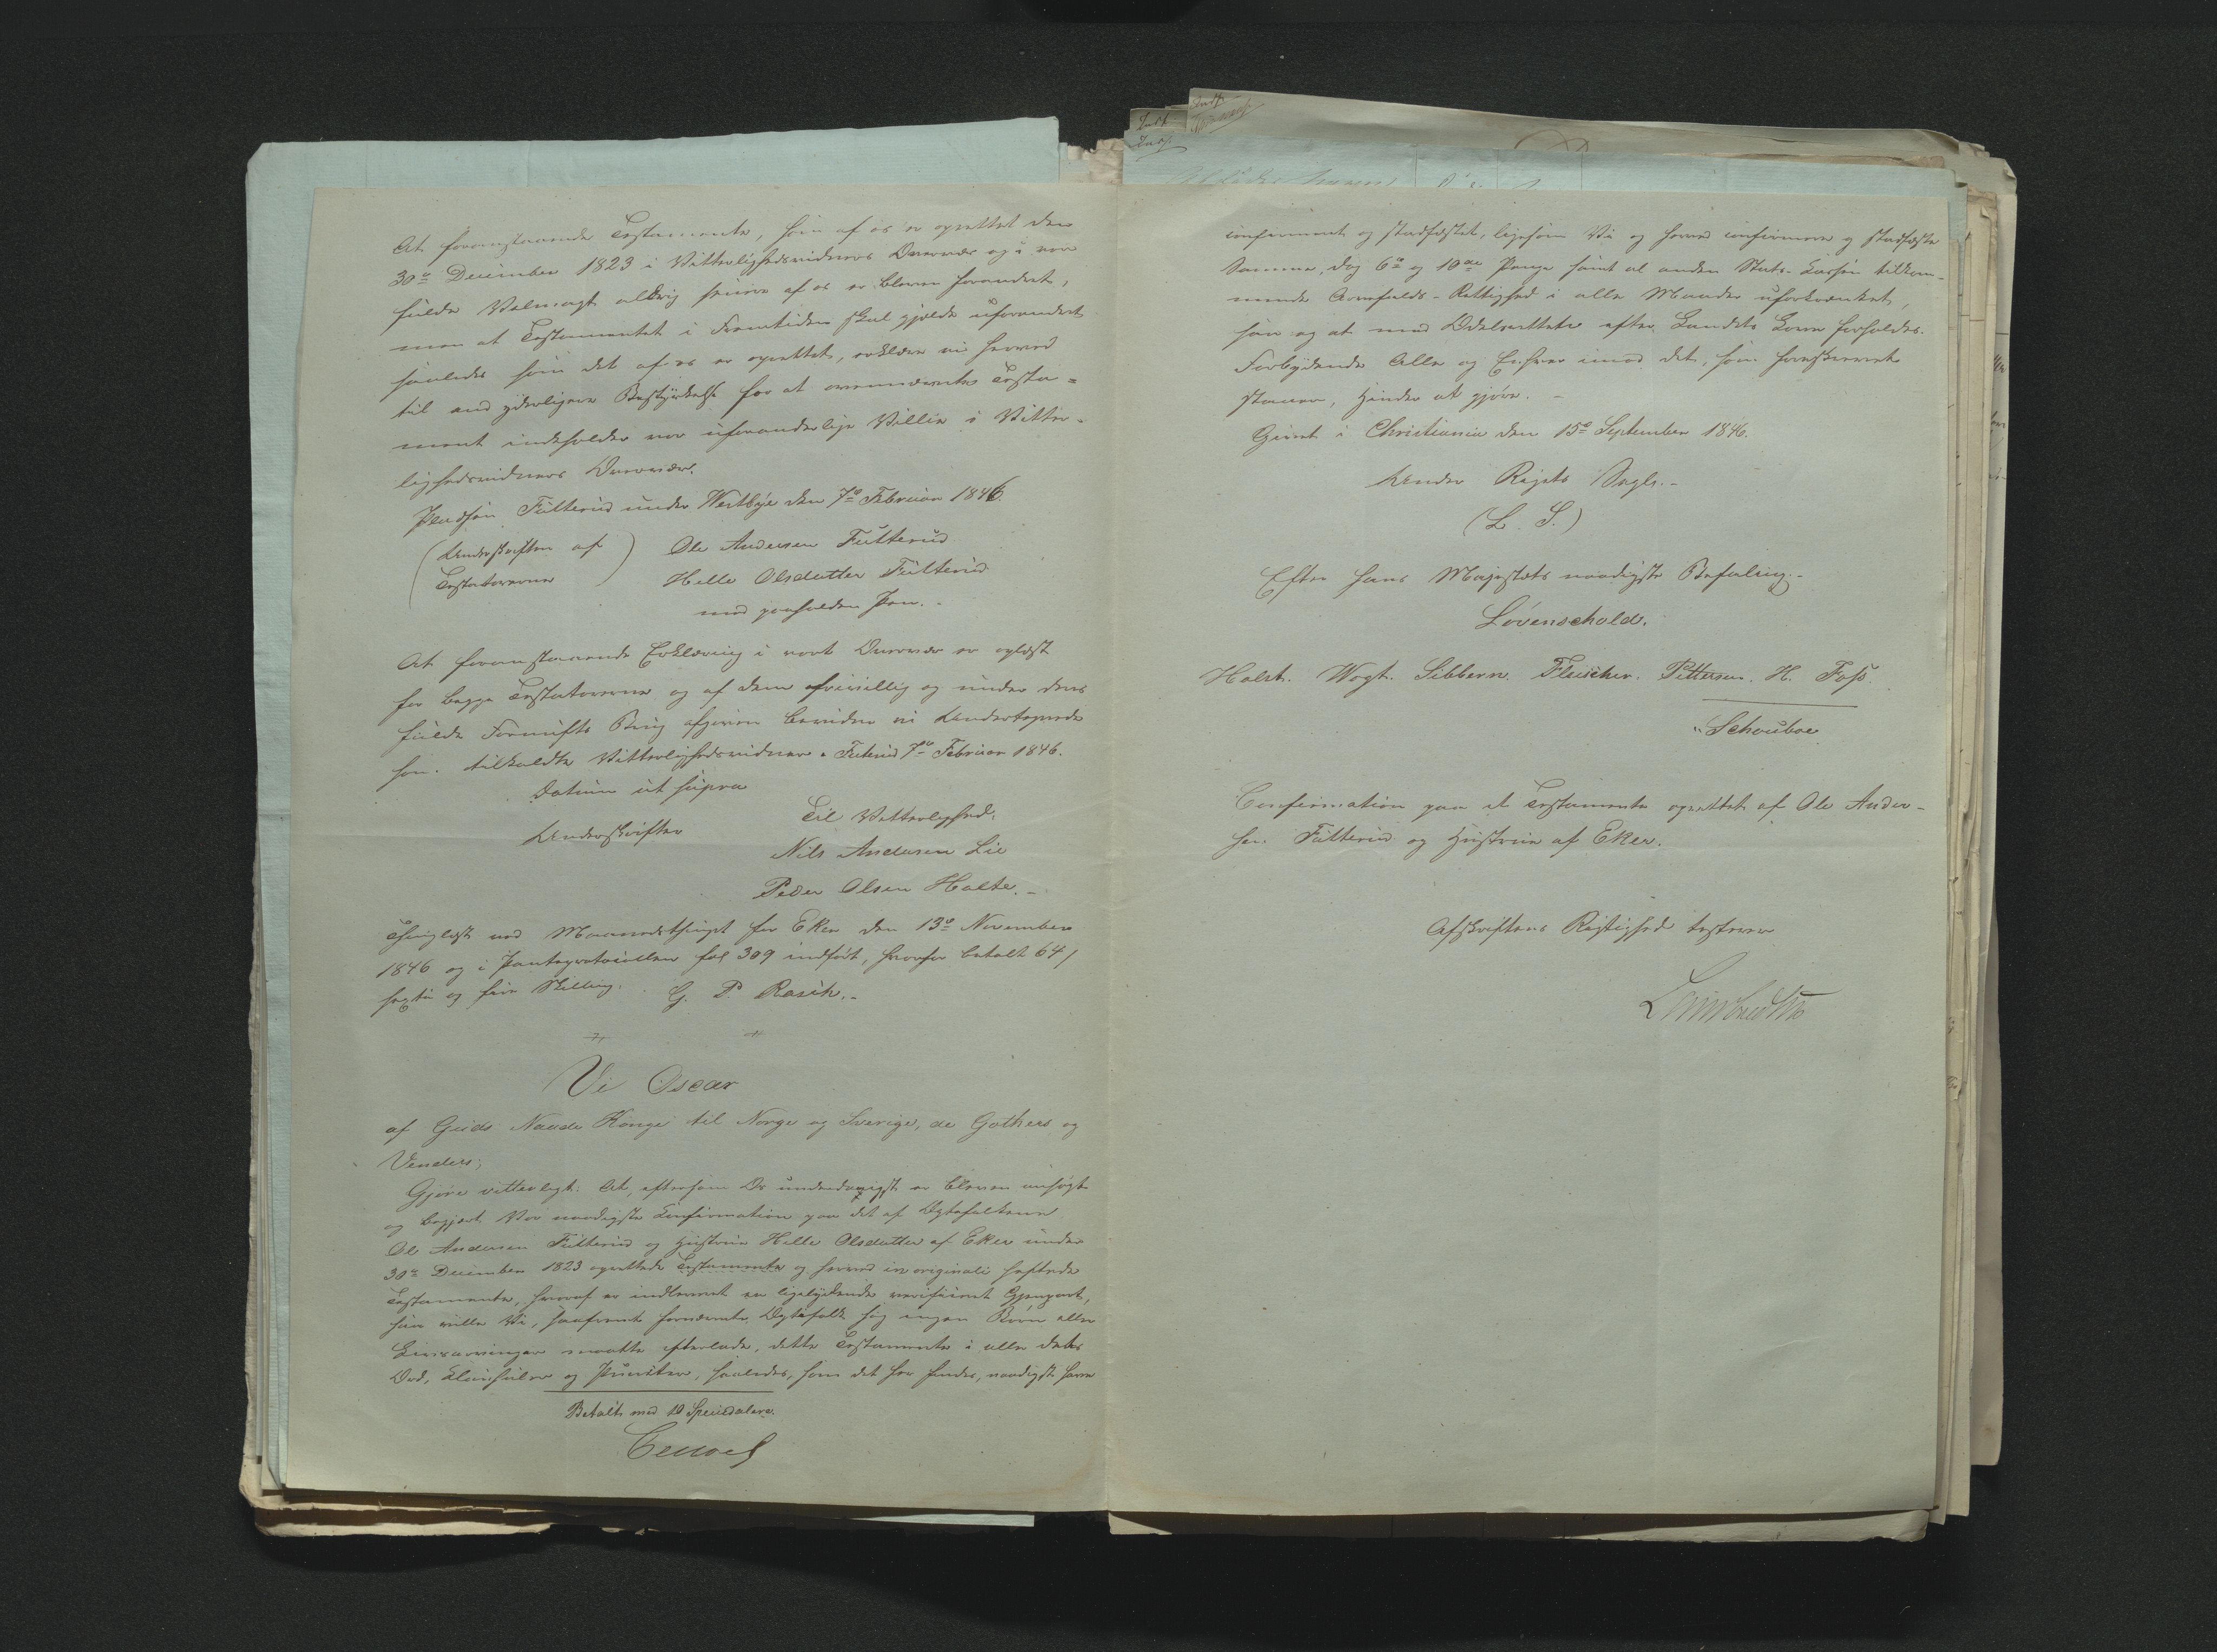 At foranstaaende Testamente, som af os er oprettet den
30te December 1823 i Vitterlighedsvidners Overvær og i vor
fulde Velmagt aldrig senere af os er bleven forandret,
men at Testamentet i Fremtiden skal gjelde uforandret
saaledes som det af os er oprettet, erklære vi herved
til end yderligere Bestyrkelse for at ovennævnte Testa=
ment indeholder vor uforanderlige Villie i Vitter-
lighedsvidners Overvær.
Pladsen Fütterud under Vestbye den 7de Februar 1846.
(Underskriften af) Ole Andersen Fütterud
(Testatorerne) Helle Olsdatter Fütterud
med paaholden Pen.-
At foranstaaende Erklæring i vort Overvær er oplæst
for begge Testatorerne og af dem frivillig og under deres
fulde Fornufts Brug afgiven bevidne vi Undertegnede
som tilkaldte Vitterlighedsvidner. Futerud 7de Februar 1846.
Datum ut supra
Til Vitterlighed.
Underskrifter
Nils Andersen Lie
Peder Olsen Holte.-
Thinglæst ved Maanedsthinget for Eker den 13de November
1846 og i Panteprotocollen fol 309 indført, hvorfor betalt 64 /
sexti og fire Skilling. G. P. Rasch.-
Vi Oscar
af Guds Naade Konge til Norge og Sverige, de Gothers og
Venders,
Gjøre vitterligt: At, eftersom Os underdanigst er bleven ansøgt
og begjert Vor naadigste Confirmation paa det af Ægtefolkene
Ole Andersen Fütterud og Hustrue Helle Olsdatter af Eker under
30te December 1823 oprettede Testamente og herved in originali heftede
Testamente, hvoraf er indleveret en ligelydende verificeret Gjenpart,
saa ville Vi, saafremt fornævnte Ægtefolk sig ingen Børn eller
Livsarvinger maatte efterlade, dette Testamente i alle dets
Ord, Clausuler og Puncter, saaledes, som det her findes, naadigst have
Betalt med 10 Speciedalere.
confirmeret og stadfæstet, ligesom Vi og herved confirmere og stadfæste
Samme, dog 6te og 10de Penge samt al anden Stats-Cassen tilkom-
mende Arvefalds-Rettighed i alle Maader uforkrænket,
saa og at med Odelsrettete efter Landets Love forholdes.
Forbydende Alle og Enhver imod det, som foreskrevet
staaer, Hinder at gjøre.-
Givet i Christiania den 15de September 1846.
Under Rigets Segl.-
(L. S.)
Efter Hans Majestæts naadigste Befaling.-
Løvenschold.
Holst. Vogt. Sibbern. Fleischer. Pettersen. H. Foss.
"Schouboe
Confirmation paa et Testamente oprettet af Ole Ander-
sen Fütterud og Hustrue af Eker.
Afskriftens Rigtighed testerer